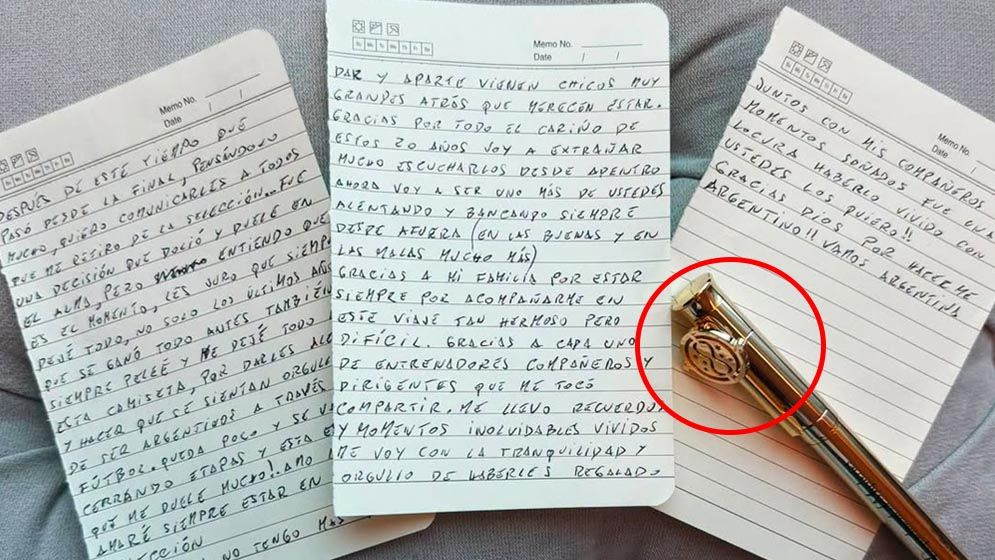 Memo No.
Date / /
DESPUÉS DE ESTE TIEMPO QUE
PASÓ DESDE LA FINAL, PENSÁNDOLO
MUCHO, QUIERO COMUNICARLES A TODOS
QUE ME RETIRO DE LA SELECCIÓN.. FUE
UNA DECISIÓN QUE DOLIÓ Y DUELE EN
EL ALMA, PERO ENTIENDO QUE
ES EL MOMENTO, LES JURO QUE SIEMP
DEJÉ TODO, NO SOLO LOS ÚLTIMOS AÑOS
QUE SE GANÓ TODO ANTES TAMBIÉN
SIEMPRE PELEÉ Y ME DEJÉ TODO
ESTA CAMISETA, POR DARLES ALE
Y HACER QUE SE SIENTAN ORGULL
DE SER ARGENTINOS A TRAVÉS
FÚTBOL. QUEDA POCO Y SE VA
CERRANDO ETAPAS Y ESTA E
QUE ME DUELE MUCHO!. AMO
AMARÉ SIEMPRE ESTAR EN
ECCIÓN
NO TENGO MAS
Memo No.
Su Mo Tu We Th Fr Sa
Date / /
DAR Y APARTE VIENEN CHICOS MUY
GRANDES ATRÁS QUE MERECEN ESTAR.
GRACIAS POR TODO EL CARIÑO DE
ESTOS 20 AÑOS VOY A EXTRAÑAR
MUCHO ESCUCHARLOS DESDE ADENTRO
AHORA VOY A SER UNO MÁS DE USTEDES
ALENTANDO Y BANCANDO SIEMPRE
DESDE AFUERA (EN LAS BUENAS Y EN
LAS MALAS MUCHO MÁS)
GRACIAS A MI FAMILIA POR ESTAR
SIEMPRE POR ACOMPAÑARME EN
ESTE VIAJE TAN HERMOSO PERO
DIFÍCIL. GRACIAS A CADA UNO
DE ENTRENADORES COMPAÑEROS Y
DIRIGENTES QUE ME TOCÓ
COMPARTIR. ME LLEVO RECUERDOS
Y MOMENTOS INOLVIDABLES VIVIDOS
ME VOY CON LA TRANQUILIDAD Y
ORGULLO DE HABERLES REGALADO
Memo No.
Date /
JUNTOS CON MIS COMPAÑEROS
MOMENTOS SOÑADOS FUE UNA
LOCURA HABERLO VIVIDO CON
USTEDES LOS QUIERO!!
GRACIAS DIOS POR HACERME
ARGENTINO!! VAMOS ARGENTINA